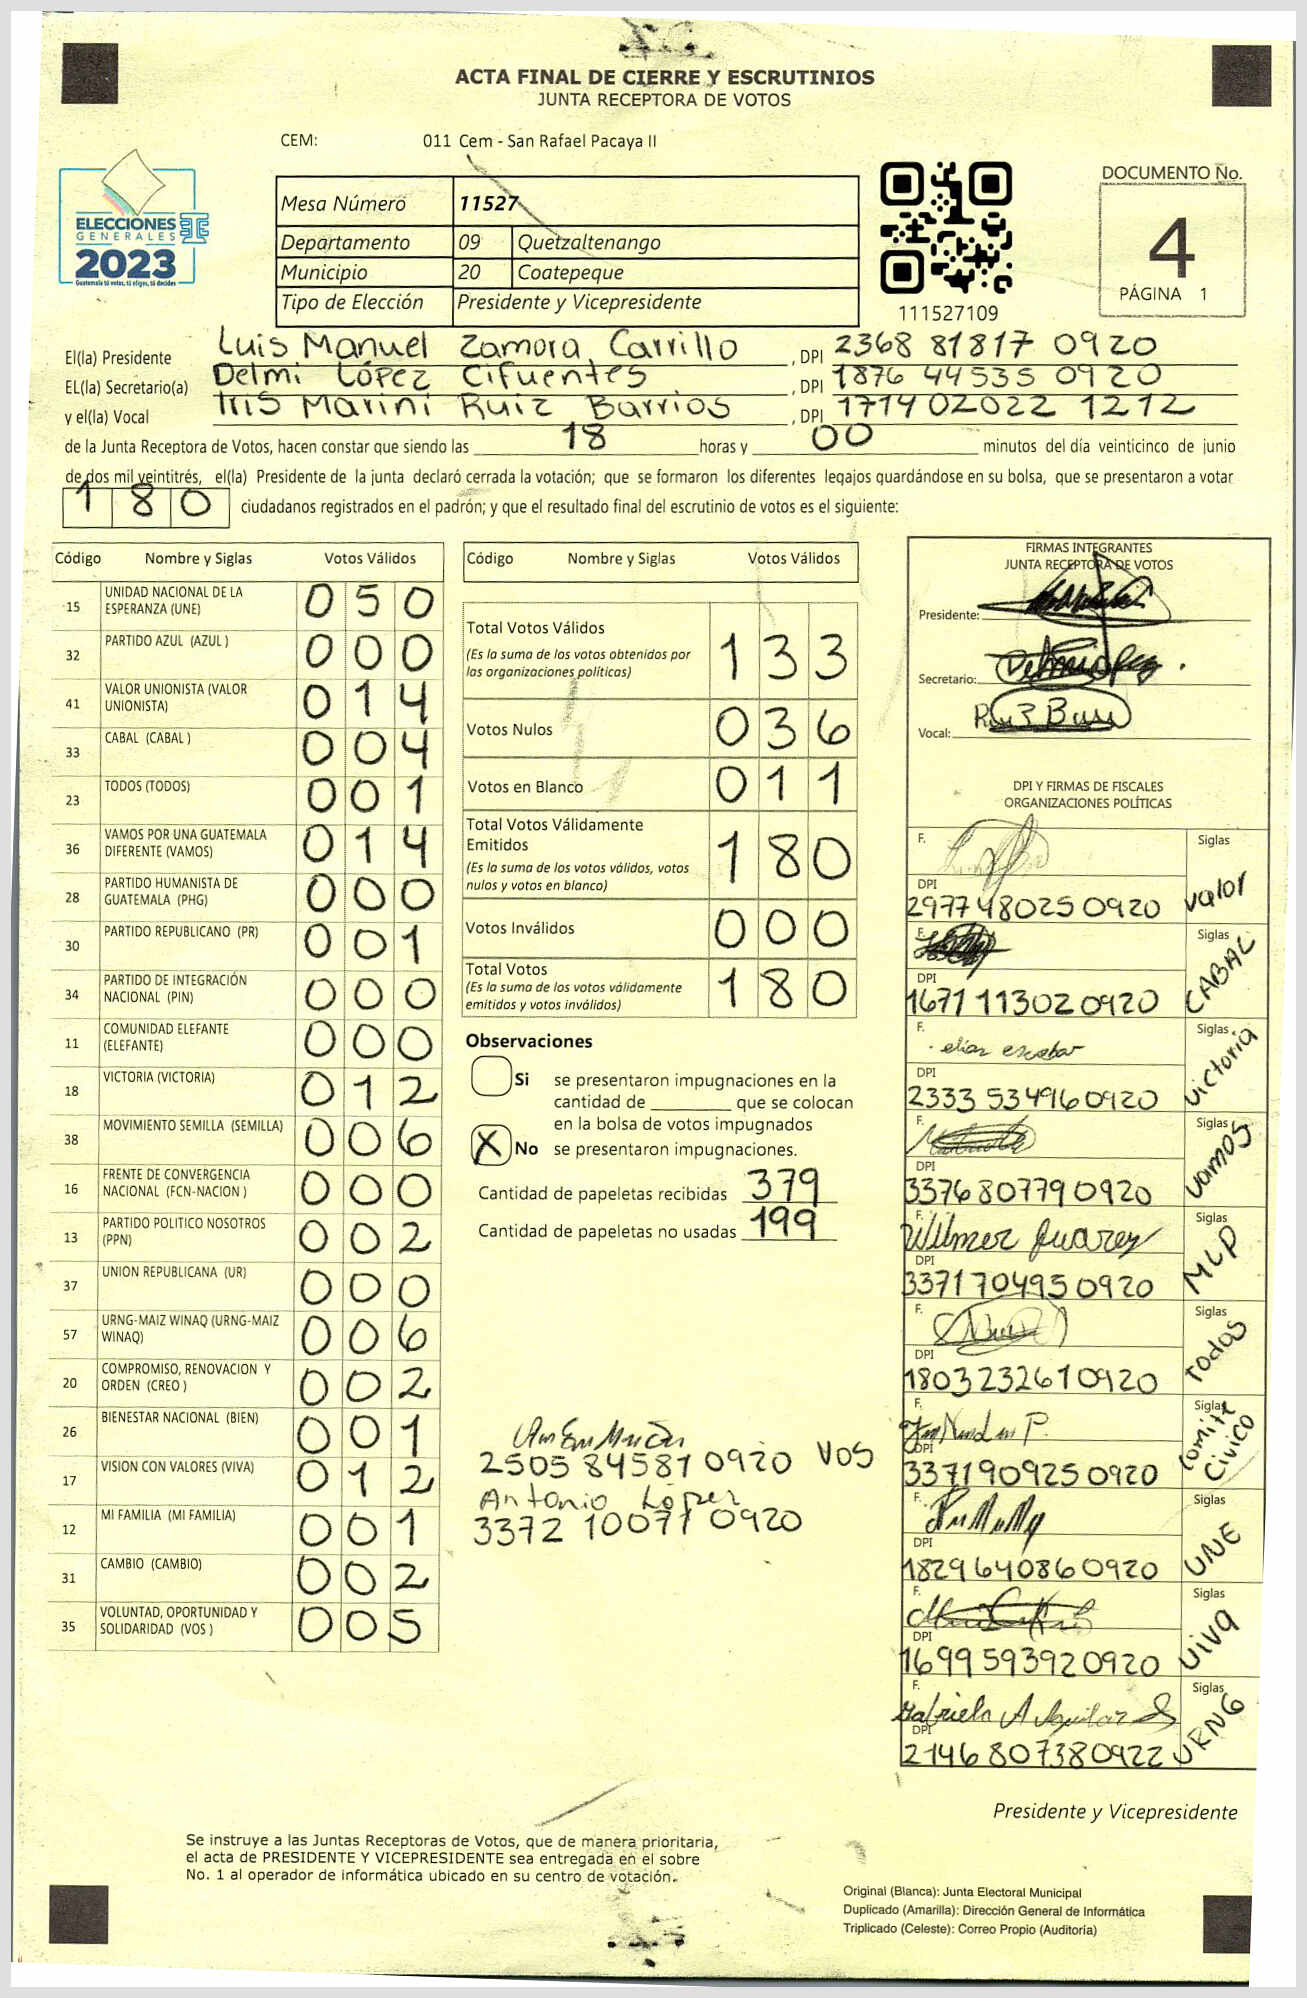 ACTA FINAL DE CIERRE Y ESCRUTINIOS
JUNTA RECEPTORA DE VOTOS
CEM: 011 Cem - San Rafael Pacaya II
ELECCIONES
GENERALES
2023
Guatemala tú votas, tú eliges, tú decides
Mesa Número 11527
Departamento 09 Quetzaltenango
Municipio 20 Coatepeque
Tipo de Elección Presidente y Vicepresidente
111527109
DOCUMENTO No.
4
PÁGINA 1
El(la) Presidente Luis Manuel Zamora Carrillo, DPI 2368 81817 0920
EL(la) Secretario(a) Delmi López Cifuentes, DPI 1876 44535 0920
y el(la) Vocal Iris Marini Ruiz Barrios, DPI 1714 02022 1212
de la Junta Receptora de Votos, hacen constar que siendo las 18 horas y 00 minutos del día veinticinco de junio
de dos mil veintitrés, el(la) Presidente de la junta declaró cerrada la votación; que se formaron los diferentes legajos guardándose en su bolsa, que se presentaron a votar
180 ciudadanos registrados en el padrón; y que el resultado final del escrutinio de votos es el siguiente:
Código Nombre y Siglas Votos Válidos
15 UNIDAD NACIONAL DE LA ESPERANZA (UNE) 050
32 PARTIDO AZUL (AZUL ) 000
41 VALOR UNIONISTA (VALOR UNIONISTA) 014
33 CABAL (CABAL ) 004
23 TODOS (TODOS) 001
36 VAMOS POR UNA GUATEMALA DIFERENTE (VAMOS) 014
28 PARTIDO HUMANISTA DE GUATEMALA (PHG) 000
30 PARTIDO REPUBLICANO (PR) 001
34 PARTIDO DE INTEGRACIÓN NACIONAL (PIN) 000
11 COMUNIDAD ELEFANTE (ELEFANTE) 000
18 VICTORIA (VICTORIA) 012
38 MOVIMIENTO SEMILLA (SEMILLA) 006
16 FRENTE DE CONVERGENCIA NACIONAL (FCN-NACION ) 000
13 PARTIDO POLITICO NOSOTROS (PPN) 002
37 UNION REPUBLICANA (UR) 000
57 URNG-MAIZ WINAQ (URNG-MAIZ WINAQ) 006
20 COMPROMISO, RENOVACION Y ORDEN (CREO ) 002
26 BIENESTAR NACIONAL (BIEN) 001
17 VISION CON VALORES (VIVA) 012
12 MI FAMILIA (MI FAMILIA) 001
31 CAMBIO (CAMBIO) 002
35 VOLUNTAD, OPORTUNIDAD Y SOLIDARIDAD (VOS ) 005
Código Nombre y Siglas Votos Válidos
Total Votos Válidos 133
(Es la suma de los votos obtenidos por
las organizaciones políticas)
Votos Nulos 036
Votos en Blanco 011
Total Votos Válidamente
Emitidos 180
(Es la suma de los votos válidos, votos
nulos y votos en blanco)
Votos Inválidos 000
Total Votos 180
(Es la suma de los votos válidamente
emitidos y votos inválidos)
Observaciones
Si se presentaron impugnaciones en la
cantidad de ________ que se colocan
en la bolsa de votos impugnados
X No se presentaron impugnaciones.
Cantidad de papeletas recibidas 379
Cantidad de papeletas no usadas 199
2505 84581 0920 VOS
Antonio López
3372 10071 0920
FIRMAS INTEGRANTES
JUNTA RECEPTORA DE VOTOS
Presidente:
Secretario:
Vocal: Ruiz
DPI Y FIRMAS DE FISCALES
ORGANIZACIONES POLÍTICAS
F. Siglas
DPI
2977480250920 valor
F. Siglas
DPI
1671 113020920 CABAL
F. elias escobar Siglas
DPI
2333 534960920 victoria
F. Siglas
DPI
3376807790920 vamos
F. Wilmer Juarez Siglas
DPI
3371704950920 MLP
F. Siglas
DPI
1803232610920 Todos
F. Siglas
DPI
3371909250920 Comite Civico
F. Siglas
DPI
1829640860920 UNE
F. Siglas
DPI
1699593920920 viva
F. Gabriela A Aguilar Siglas
DPI
2146807380922 URNG
Presidente y Vicepresidente
Se instruye a las Juntas Receptoras de Votos, que de manera prioritaria,
el acta de PRESIDENTE Y VICEPRESIDENTE sea entregada en el sobre
No. 1 al operador de informática ubicado en su centro de votación.
Original (Blanca): Junta Electoral Municipal
Duplicado (Amarilla): Dirección General de Informática
Triplicado (Celeste): Correo Propio (Auditoría)